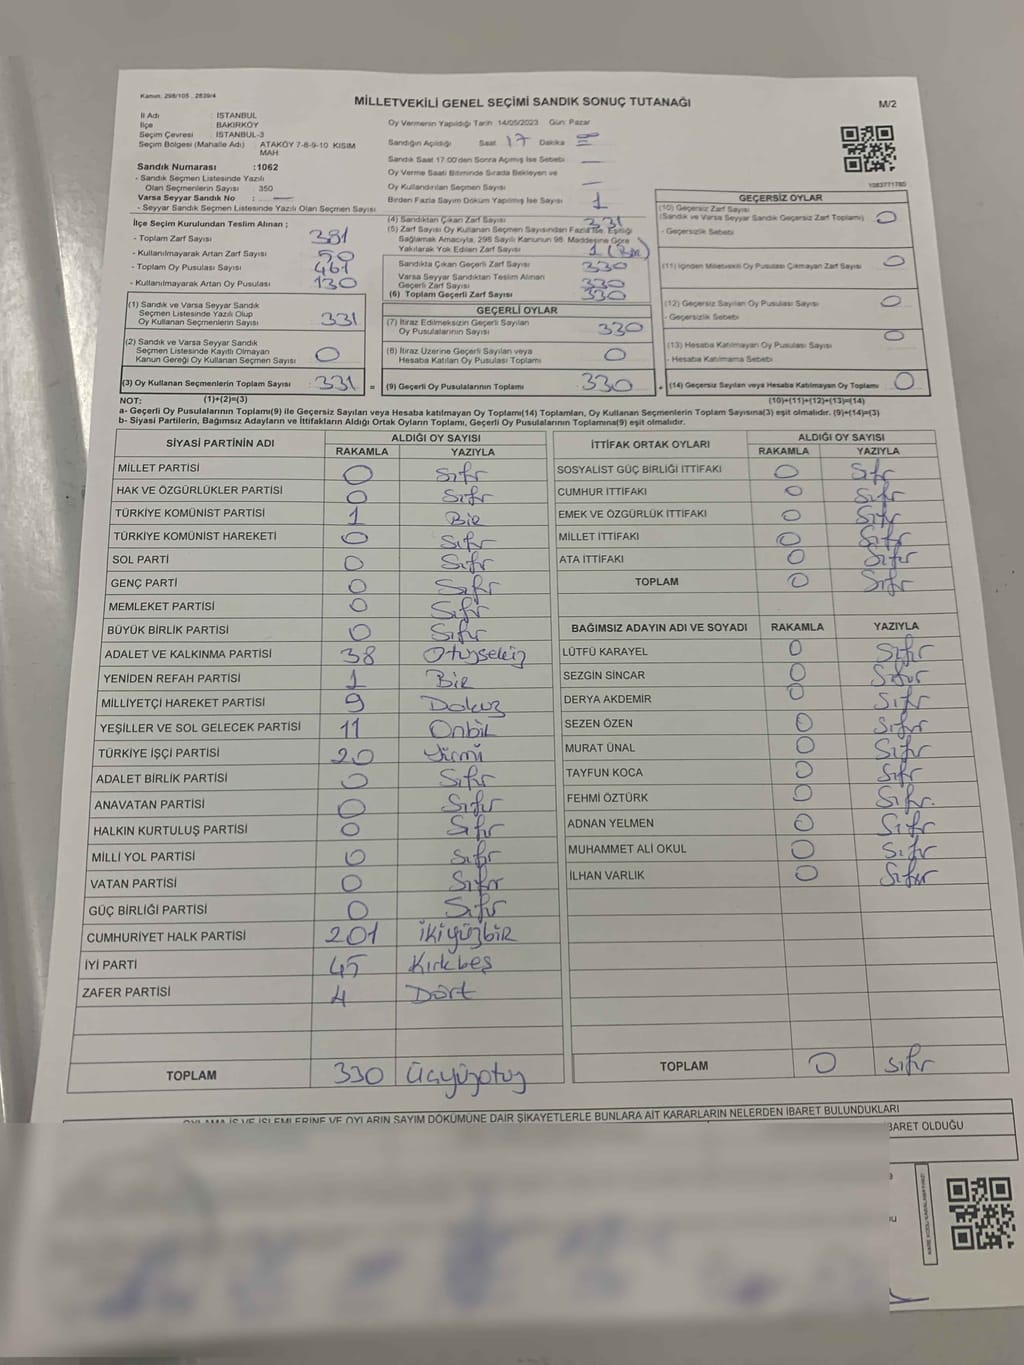 Kanun: 298/105 , 2839/4
MİLLETVEKİLİ GENEL SEÇİMİ SANDIK SONUÇ TUTANAĞI
M/2
İl Adı : İSTANBUL
İlçe : BAKIRKÖY
Seçim Çevresi : İSTANBUL-3
Seçim Bölgesi (Mahalle Adı) : ATAKÖY 7-8-9-10 KISIM MAH.
Sandık Numarası :1062
- Sandık Seçmen Listesinde Yazılı
Olan Seçmenlerin Sayısı : 350
Varsa Seyyar Sandık No : —
- Seyyar Sandık Seçmen Listesinde Yazılı Olan Seçmen Sayısı
İlçe Seçim Kurulundan Teslim Alınan ;
- Toplam Zarf Sayısı : 381
- Kullanılmayarak Artan Zarf Sayısı : 50
- Toplam Oy Pusulası Sayısı : 461
- Kullanılmayarak Artan Oy Pusulası : 130
(1) Sandık ve Varsa Seyyar Sandık
Seçmen Listesinde Yazılı Olup
Oy Kullanan Seçmenlerin Sayısı : 331
(2) Sandık ve Varsa Seyyar Sandık
Seçmen Listesinde Kayıtlı Olmayan
Kanun Gereği Oy Kullanan Seçmen Sayısı : 0
(3) Oy Kullanan Seçmenlerin Toplam Sayısı : 331 =
Oy Vermenin Yapıldığı Tarih 14/05/2023 Gün: Pazar
Sandığın Açıldığı Saat 17 Dakika
Sandık Saat 17:00'den Sonra Açılmış İse Sebebi —
Oy Verme Saati Bitiminde Sırada Bekleyen ve
Oy Kullandırılan Seçmen Sayısı —
Birden Fazla Sayım Döküm Yapılmış İse Sayısı 1
(4) Sandıktan Çıkan Zarf Sayısı 331
(5) Zarf Sayısı Oy Kullanan Seçmen Sayısından Fazla İse, Eşitliği
Sağlamak Amacıyla, 298 Sayılı Kanunun 98. Maddesine Göre
Yakılarak Yok Edilen Zarf Sayısı : 1
Sandıkta Çıkan Geçerli Zarf Sayısı 330
Varsa Seyyar Sandıktan Teslim Alınan
Geçerli Zarf Sayısı 330
(6) Toplam Geçerli Zarf Sayısı 330
GEÇERLİ OYLAR
(7) İtiraz Edilmeksizin Geçerli Sayılan
Oy Pusulalarının Sayısı : 330
(8) İtiraz Üzerine Geçerli Sayılan veya
Hesaba Katılan Oy Pusulası Toplamı : 0
(9) Geçerli Oy Pusulalarının Toplamı : 330 +
1083771780
GEÇERSİZ OYLAR
(10) Geçersiz Zarf Sayısı
(Sandık ve Varsa Seyyar Sandık Geçersiz Zarf Toplamı) : 0
- Geçersizlik Sebebi :
(11) İçinden Milletvekili Oy Pusulası Çıkmayan Zarf Sayısı : 0
(12) Geçersiz Sayılan Oy Pusulası Sayısı : 0
- Geçersizlik Sebebi :
(13) Hesaba Katılmayan Oy Pusulası Sayısı : 0
- Hesaba Katılmama Sebebi :
(14) Geçersiz Sayılan veya Hesaba Katılmayan Oy Toplamı : 0
NOT: (1)+(2)=(3) (10)+(11)+(12)+(13)=(14)
a- Geçerli Oy Pusulalarının Toplamı(9) ile Geçersiz Sayılan veya Hesaba katılmayan Oy Toplamı(14) Toplamları, Oy Kullanan Seçmenlerin Toplam Sayısına(3) eşit olmalıdır. (9)+(14)=(3)
b- Siyasi Partilerin, Bağımsız Adayların ve İttifakların Aldığı Ortak Oyların Toplamı, Geçerli Oy Pusulalarının Toplamına(9) eşit olmalıdır.
SİYASİ PARTİNİN ADI ALDIĞI OY SAYISI
RAKAMLA YAZIYLA
MİLLET PARTİSİ 0 Sıfır
HAK VE ÖZGÜRLÜKLER PARTİSİ 0 Sıfır
TÜRKİYE KOMÜNİST PARTİSİ 1 Bir
TÜRKİYE KOMÜNİST HAREKETİ 0 Sıfır
SOL PARTİ 0 Sıfır
GENÇ PARTİ 0 Sıfır
MEMLEKET PARTİSİ 0 Sıfır
BÜYÜK BİRLİK PARTİSİ 0 Sıfır
ADALET VE KALKINMA PARTİSİ 38 Otuzsekiz
YENİDEN REFAH PARTİSİ 1 Bir
MİLLİYETÇİ HAREKET PARTİSİ 9 Dokuz
YEŞİLLER VE SOL GELECEK PARTİSİ 11 Onbir
TÜRKİYE İŞÇİ PARTİSİ 20 Yirmi
ADALET BİRLİK PARTİSİ 0 Sıfır
ANAVATAN PARTİSİ 0 Sıfır
HALKIN KURTULUŞ PARTİSİ 0 Sıfır
MİLLİ YOL PARTİSİ 0 Sıfır
VATAN PARTİSİ 0 Sıfır
GÜÇ BİRLİĞİ PARTİSİ 0 Sıfır
CUMHURİYET HALK PARTİSİ 201 İkiyüzbir
İYİ PARTİ 45 Kırkbeş
ZAFER PARTİSİ 4 Dört
TOPLAM 330 Üçyüzotuz
İTTİFAK ORTAK OYLARI ALDIĞI OY SAYISI
RAKAMLA YAZIYLA
SOSYALİST GÜÇ BİRLİĞİ İTTİFAKI 0 Sıfır
CUMHUR İTTİFAKI 0 Sıfır
EMEK VE ÖZGÜRLÜK İTTİFAKI 0 Sıfır
MİLLET İTTİFAKI 0 Sıfır
ATA İTTİFAKI 0 Sıfır
TOPLAM 0 Sıfır
BAĞIMSIZ ADAYIN ADI VE SOYADI RAKAMLA YAZIYLA
LÜTFÜ KARAYEL 0 Sıfır
SEZGİN SİNCAR 0 Sıfır
DERYA AKDEMİR 0 Sıfır
SEZEN ÖZEN 0 Sıfır
MURAT ÜNAL 0 Sıfır
TAYFUN KOCA 0 Sıfır
FEHMİ ÖZTÜRK 0 Sıfır.
ADNAN YELMEN 0 Sıfır
MUHAMMET ALİ OKUL 0 Sıfır
İLHAN VARLIK 0 Sıfır
TOPLAM 0 Sıfır
İŞ VE İŞLEMLERİNE VE OYLARIN SAYIM DÖKÜMÜNE DAİR ŞİKAYETLERLE BUNLARA AİT KARARLARIN NELERDEN İBARET BULUNDUKLARI
İBARET OLDUĞU